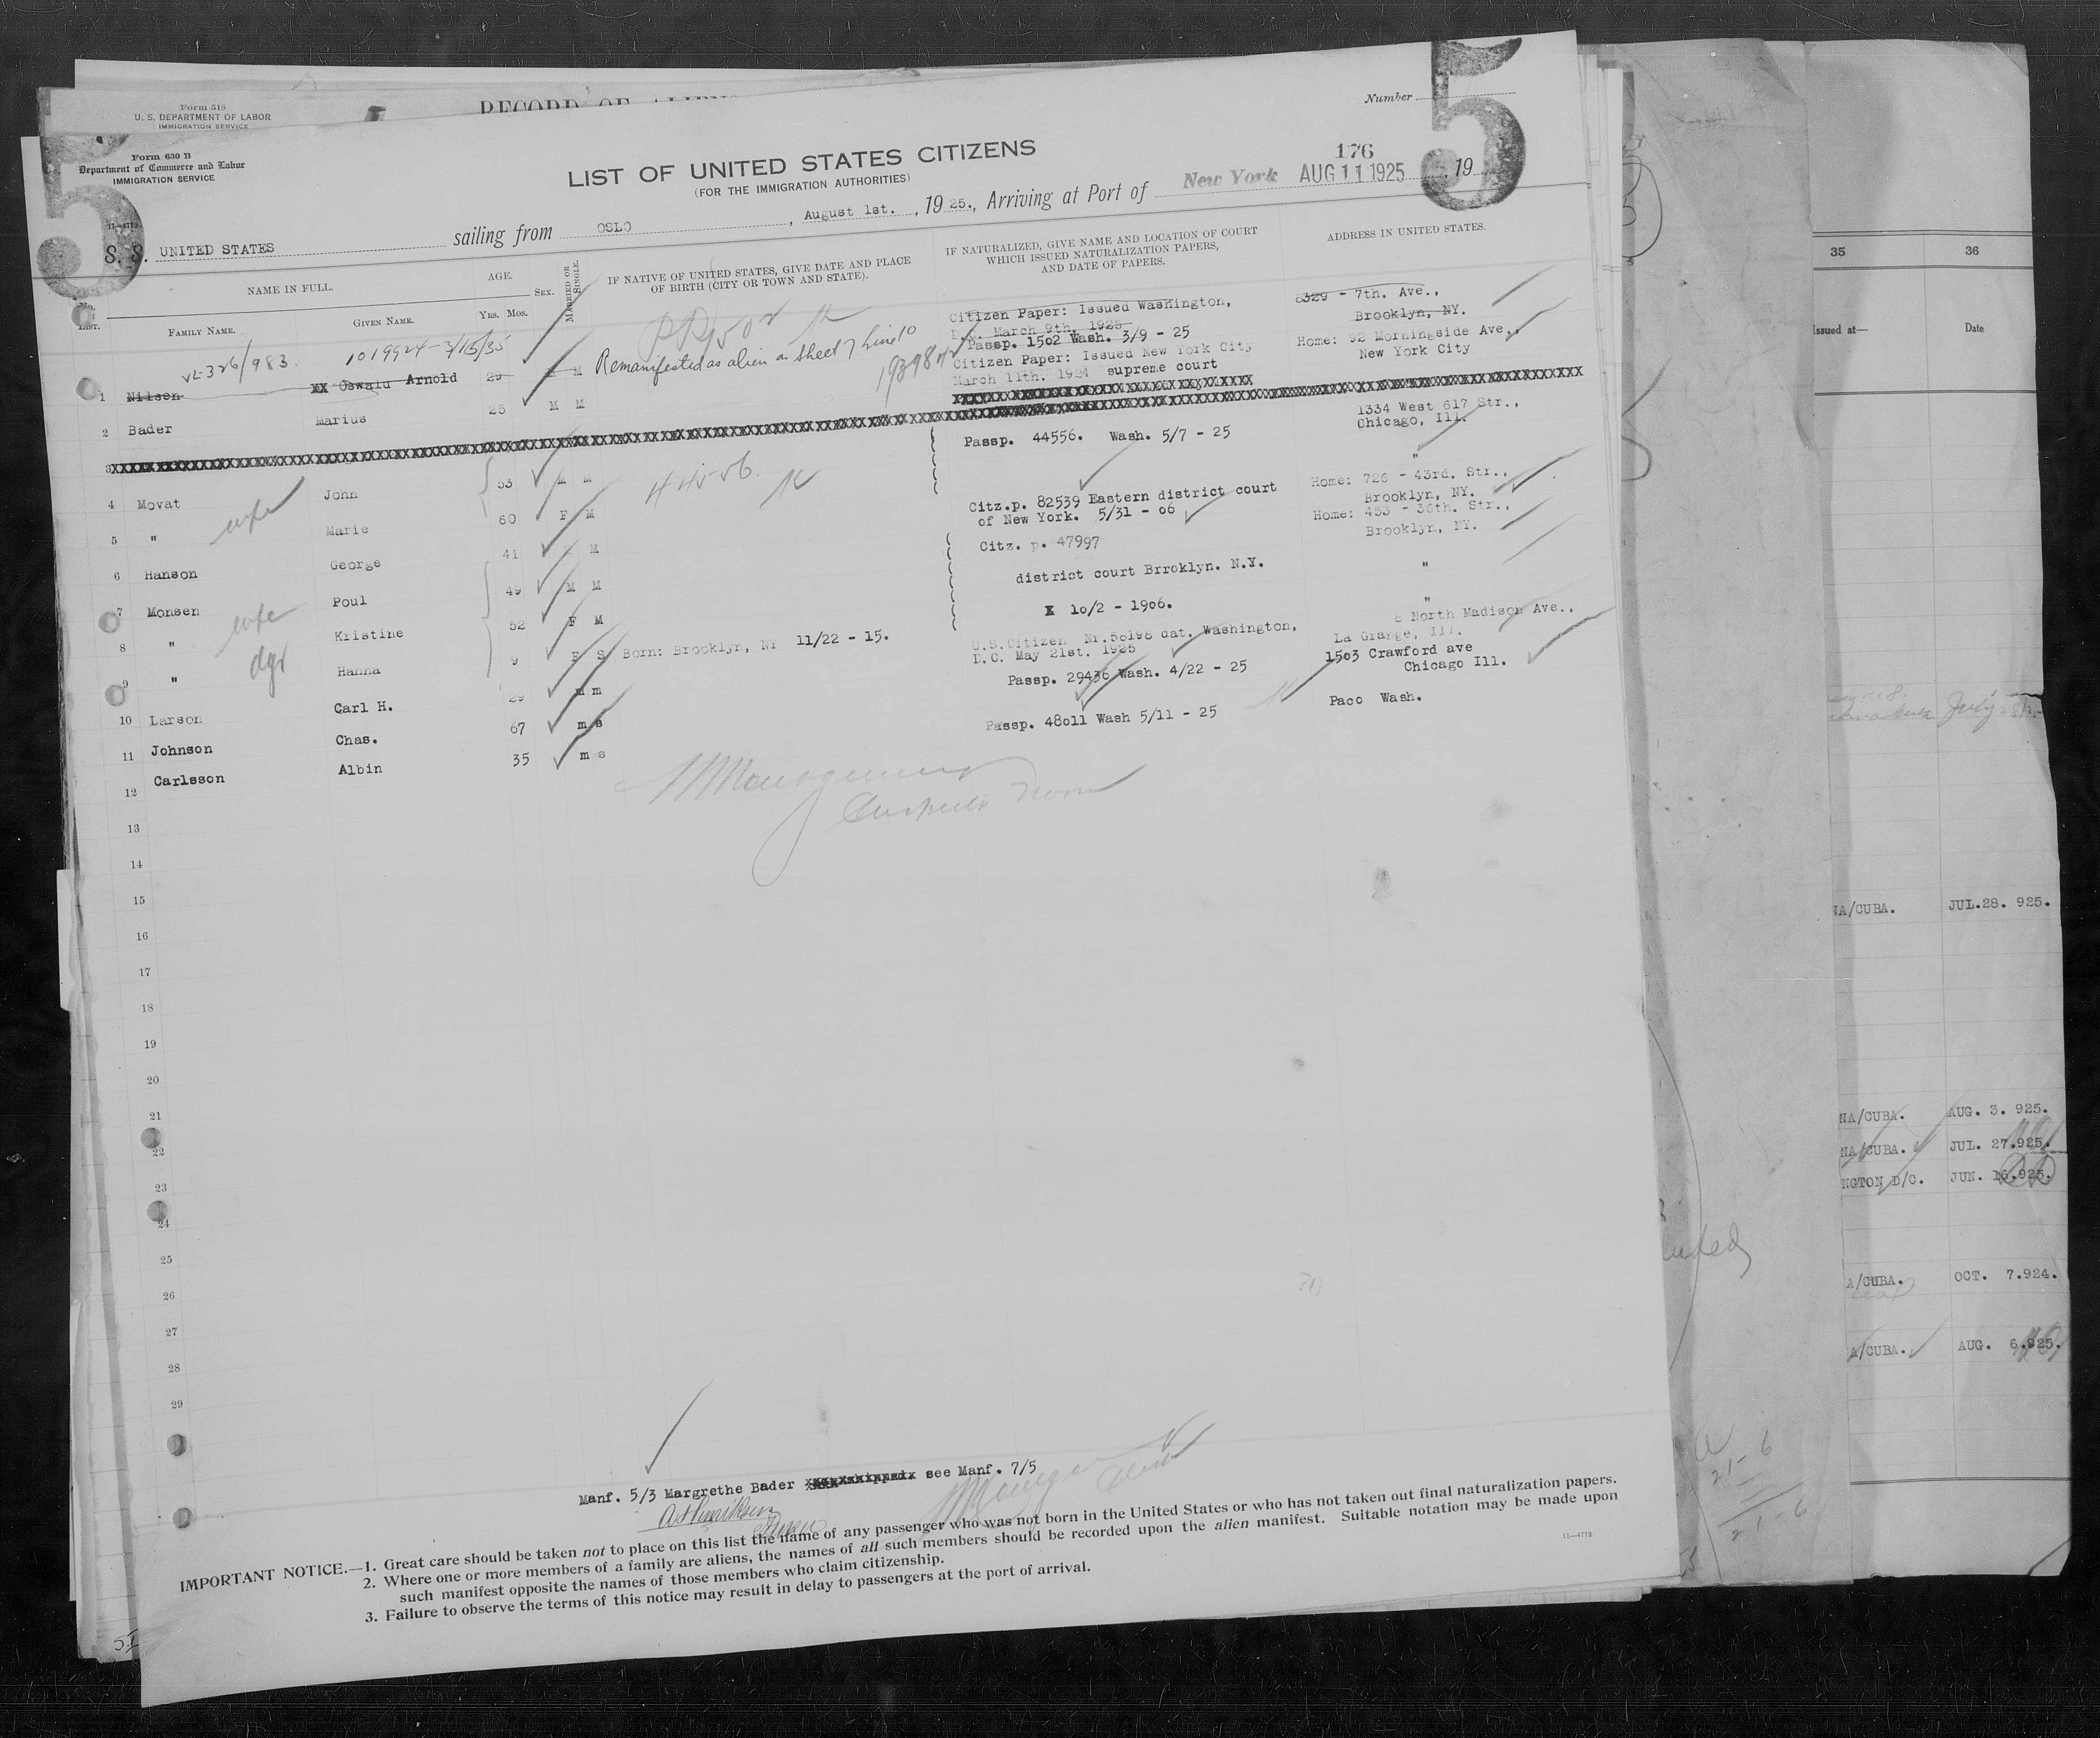 Form 518
U. S. DEPARTMENT OF LABOR
IMMIGRATION SERVICE
RECORD OF ALIENS
5
5
Number
Form 630 B
Department of Commerce and Labor
IMMIGRATION SERVICE
LIST OF UNITED STATES CITIZENS
(FOR THE IMMIGRATION AUTHORITIES)
176
11—4712
S. S. UNITED STATES sailing from OSLO, August 1st., 1925., Arriving at Port of New York AUG 11 1925 19
No. LIST.
NAME IN FULL.
FAMILY NAME.
GIVEN NAME.
AGE.
Yrs. Mos.
SEX.
MARRIED OR SINGLE.
IF NATIVE OF UNITED STATES, GIVE DATE AND PLACE
OF BIRTH (CITY OR TOWN AND STATE).
IF NATURALIZED, GIVE NAME AND LOCATION OF COURT
WHICH ISSUED NATURALIZATION PAPERS,
AND DATE OF PAPERS.
ADDRESS IN UNITED STATES.
VL-326/983. 1019924-3/15/35
PP 1502
1 Nilsen XX Oswald Arnold 29 M M Remanifested as alien on sheet 7 Line 10
Citizen Paper: Issued Washington,
D.C. March 9th. 1925
Passp. 1502 Wash. 3/9 - 25
8329 - 7th. Ave.,
Brooklyn, NY.
2 Bader Marius 25 M M
Citizen Paper: Issued New York City
March 11th. 1924 supreme court
Home: 92 Morningside Ave.,
New York City
3
4 Movat John 53 M M 44556.
Passp. 44556. Wash. 5/7 - 25
1334 West 617 Str.,
Chicago, Ill.
5 " wife Marie 60 F M "
6 Hanson George 41 M M
Citz.p. 82539 Eastern district court
of New York. 5/31 - 06
Home: 726 - 43rd. Str.,
Brooklyn, NY.
7 Monsen Poul 49 M M
Citz. p. 47997
district court Brroklyn. N.Y.
X 10/2 - 1906.
Home: 453 - 36th. Str.,
Brooklyn, NY.
8 " wife Kristine 52 F M "
9 " dgr Hanna 9 F S Born: Brooklyn, NY 11/22 - 15. "
10 Larson Carl H. 29 M m
U.S.Citizen Nr.58198 dat. Washington,
D.C. May 21st. 1925
8 North Madison Ave.,
La Grange, Ill.
11 Johnson Chas. 67 m s
Passp. 29436 Wash. 4/22 - 25
1503 Crawford ave
Chicago Ill.
12 Carlsson Albin 35 m s
Passp. 48011 Wash 5/11 - 25
Paco Wash.
13
14
15
16
17
18
19
20
21
22
23
24
25
26
27
28
29
Manf. 5/3 Margrethe Bader see Manf. 7/5
IMPORTANT NOTICE.—1. Great care should be taken not to place on this list the name of any passenger who was not born in the United States or who has not taken out final naturalization papers.
2. Where one or more members of a family are aliens, the names of all such members should be recorded upon the alien manifest. Suitable notation may be made upon
such manifest opposite the names of those members who claim citizenship.
3. Failure to observe the terms of this notice may result in delay to passengers at the port of arrival.
11—4712
35 36
Issued at— Date
July
NA/CUBA. JUL.28. 925.
NA/CUBA. AUG. 3. 925.
NA/CUBA. JUL. 27.925.
NGTON D/C. JUN. 16.925.
A/CUBA. OCT. 7.924.
A/CUBA. AUG. 6.925.
21-6
21-6